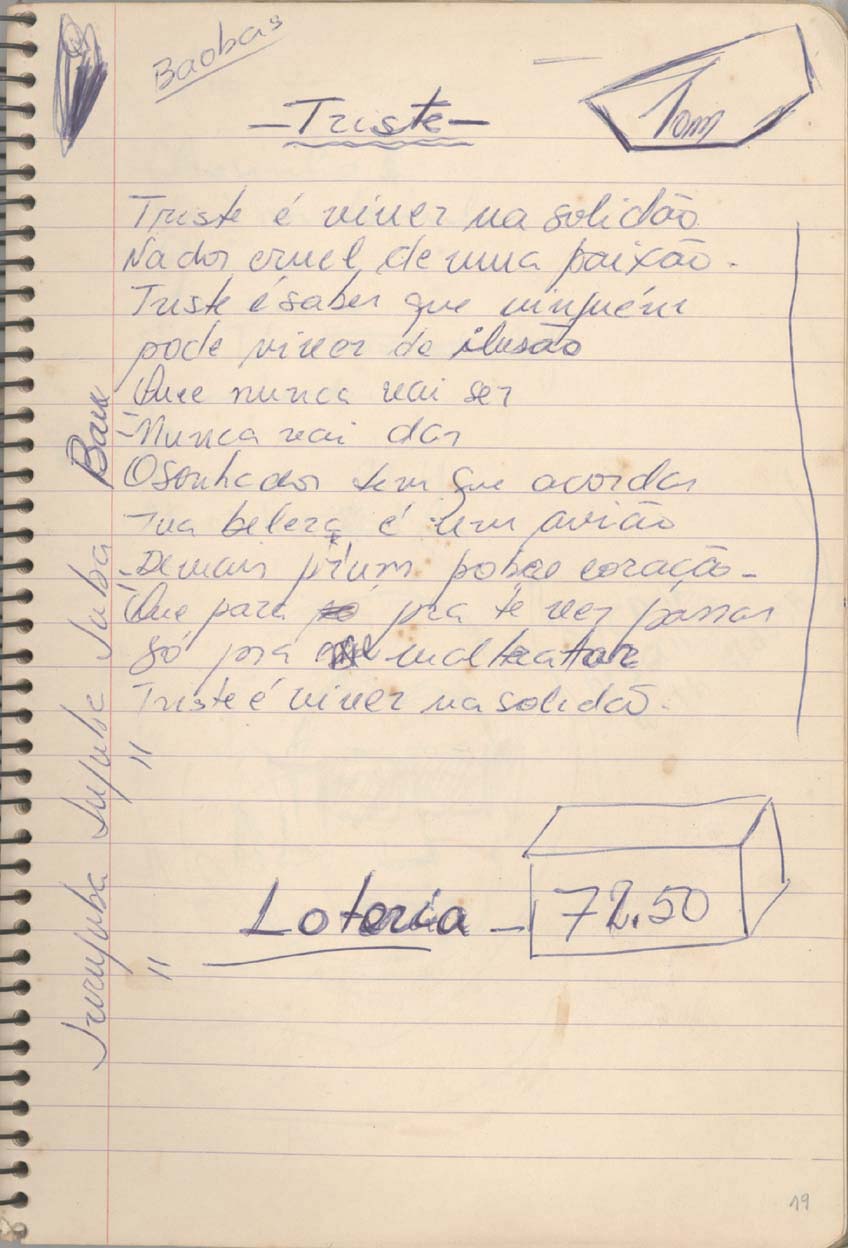 Baobas
- Triste -
Tom
Triste é viver na solidão
Na dor cruel de uma paixão.
Triste é saber que ninguém
pode viver de ilusão
Que nunca vai ser
Nunca vai dar
O sonhador tem que acordar
Tua beleza é um avião
Demais p'rum pobre coração
Que para pra te ver passar
Só pra maltratar
Triste é viver na solidão.
"
Loteria - 72.50
"
Jurujuba Jujuba Juba
19